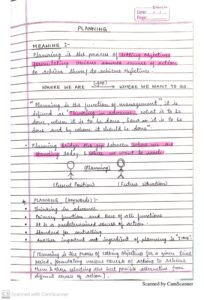 Date :
Page :
PLANNING
MEANING :-
Planning is the process of setting objectives
formulating various courses of action
to achieve them / to achieve objectives.
WHERE WE ARE GAP WHERE WE WANT TO GO
"Planning is the function of management". It is
defined as "Thinking in advance, what is to be
done, when it is to be done, how is it to be
done and by whom it should be done"
Planning bridge the gap between where we are
standing today & where we want to reach.
Planning
(Present Position) (Future Situation)
PLANNING (keywords) :-
Thinking in advance
Primary function and base of all functions
It is a predetermined course of action
Standard for controlling
Another important ingredient of planning is "time"
Planning is the process of setting objectives for a given time
period, formulating various courses of actions to achieve
them & then selecting the best possible alternative from
different course of action.
Scanned with CamScanner
Scanned by CamScanner